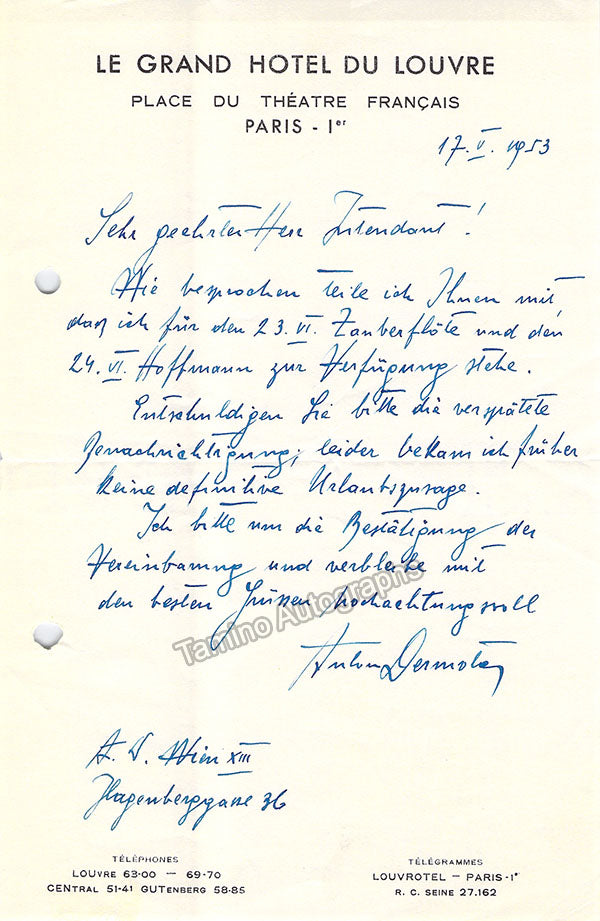 LE GRAND HOTEL DU LOUVRE
PLACE DU THÉATRE FRANÇAIS
PARIS - Ier
17. V. 1953
Sehr geehrter Herr Intendant!
Wie besprochen teile ich Ihnen mit,
daß ich für den 23. VI. Zauberflöte und den
24. VI. Hoffmann zur Verfügung stehe.
Entschuldigen Sie bitte die verspätete
Benachrichtigung, leider bekam ich früher
keine definitive Urlaubszusage.
Ich bitte um die Bestätigung der
Vereinbarung und verbleibe mit
den besten Grüssen hochachtungsvoll
Tamino Autographs
Anton Dermota
A. D. Wien XIII
Hagenberggasse 36
TÉLÉPHONES
LOUVRE 63-00 — 69-70
CENTRAL 51-41 GUTENBERG 58-85
TÉLÉGRAMMES
LOUVROTEL — PARIS-1er
R. C. SEINE 27.162